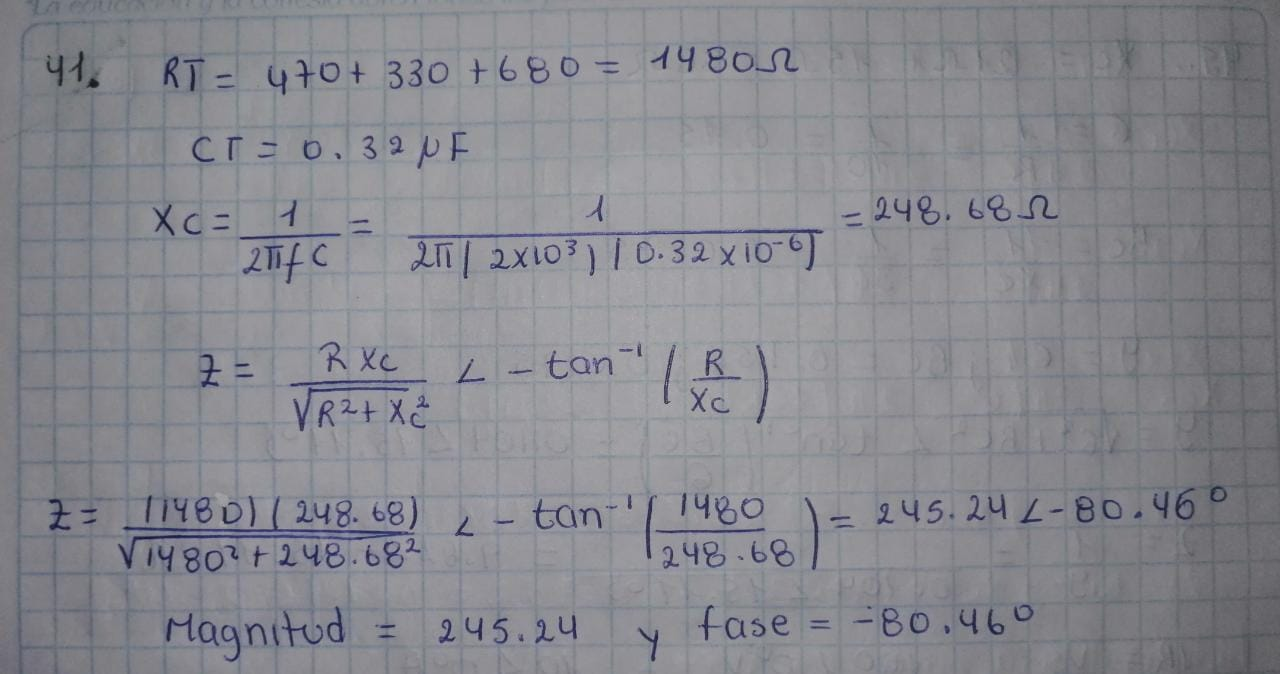 41. RT = 470 + 330 + 680 = 1480Ω
CT = 0.32 μF
XC = 1/2πfC = 1/2π(2x10³)(0.32x10⁻⁶) = 248.68Ω
Z = RXC/√R²+XC² ∠ -tan⁻¹(R/XC)
Z = (1480)(248.68)/√1480²+248.68² ∠ -tan⁻¹(1480/248.68) = 245.24∠-80.46°
Magnitud = 245.24 y fase = -80.46°